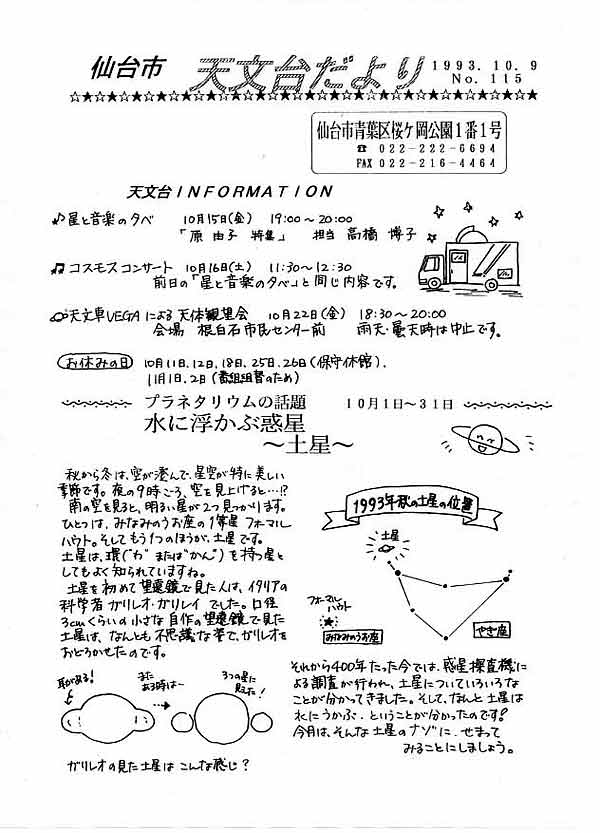 仙台市 天文台だより 1993.10.9
No.115
☆★☆★☆★☆★☆★☆★☆★☆★☆★☆★☆★☆★☆★☆★☆★☆★☆★☆★☆★☆
仙台市青葉区桜ケ岡公園1番1号
☎ 022-222-6694
FAX 022-216-4464
天文台INFORMATION
♪星と音楽の夕べ 10月15日(金) 19:00〜20:00
「原 由子 特集」 担当 高橋 博子
♫コスモスコンサート 10月16日(土) 11:30〜12:30
前日の「星と音楽の夕べ」と同じ内容です。
天文車VEGAによる天体観望会 10月22日(金) 18:30〜20:00
会場 根白石市民センター前 雨天・曇天時は中止です。
お休みの日 10月11日.12日.18日.25日.26日(保守休館).
11月1日.2日(番組組替のため)
プラネタリウムの話題 10月1日〜31日
水に浮かぶ惑星
〜土星〜
秋から冬は、空が澄んで、星空が特に美しい
季節です。夜の9時ごろ、空を見上げると…!?
南の空を見ると、明るい星が2つ見つかります。
ひとつは、みなみのうお座の1等星 フォーマル
ハウト。そしてもう1つのほうが、土星です。
土星は、環("わ"または"かん")を持つ星と
してもよく知られていますね。
土星を初めて望遠鏡で見た人は、イタリアの
科学者 ガリレオ・ガリレイ でした。口径
3cmくらいの小さな自作の望遠鏡で見た
土星は、なんとも不思議な姿で、ガリレオを
おどろかせたのです。
耳がある!
また
ある時は…
3つの星に
見えた!
ガリレオの見た土星は こんな感じ?
1993年秋の土星の位置
土星
フォーマル
ハウト
みなみのうお座
やぎ座
それから400年たった今では、惑星探査機に
よる調査が行われ、土星についていろいろな
ことが分かってきました。そして、なんと 土星は
水にうかぶ、ということが分かったのです!
今月は、そんな土星のナゾに、せまって
みることにしましょう。